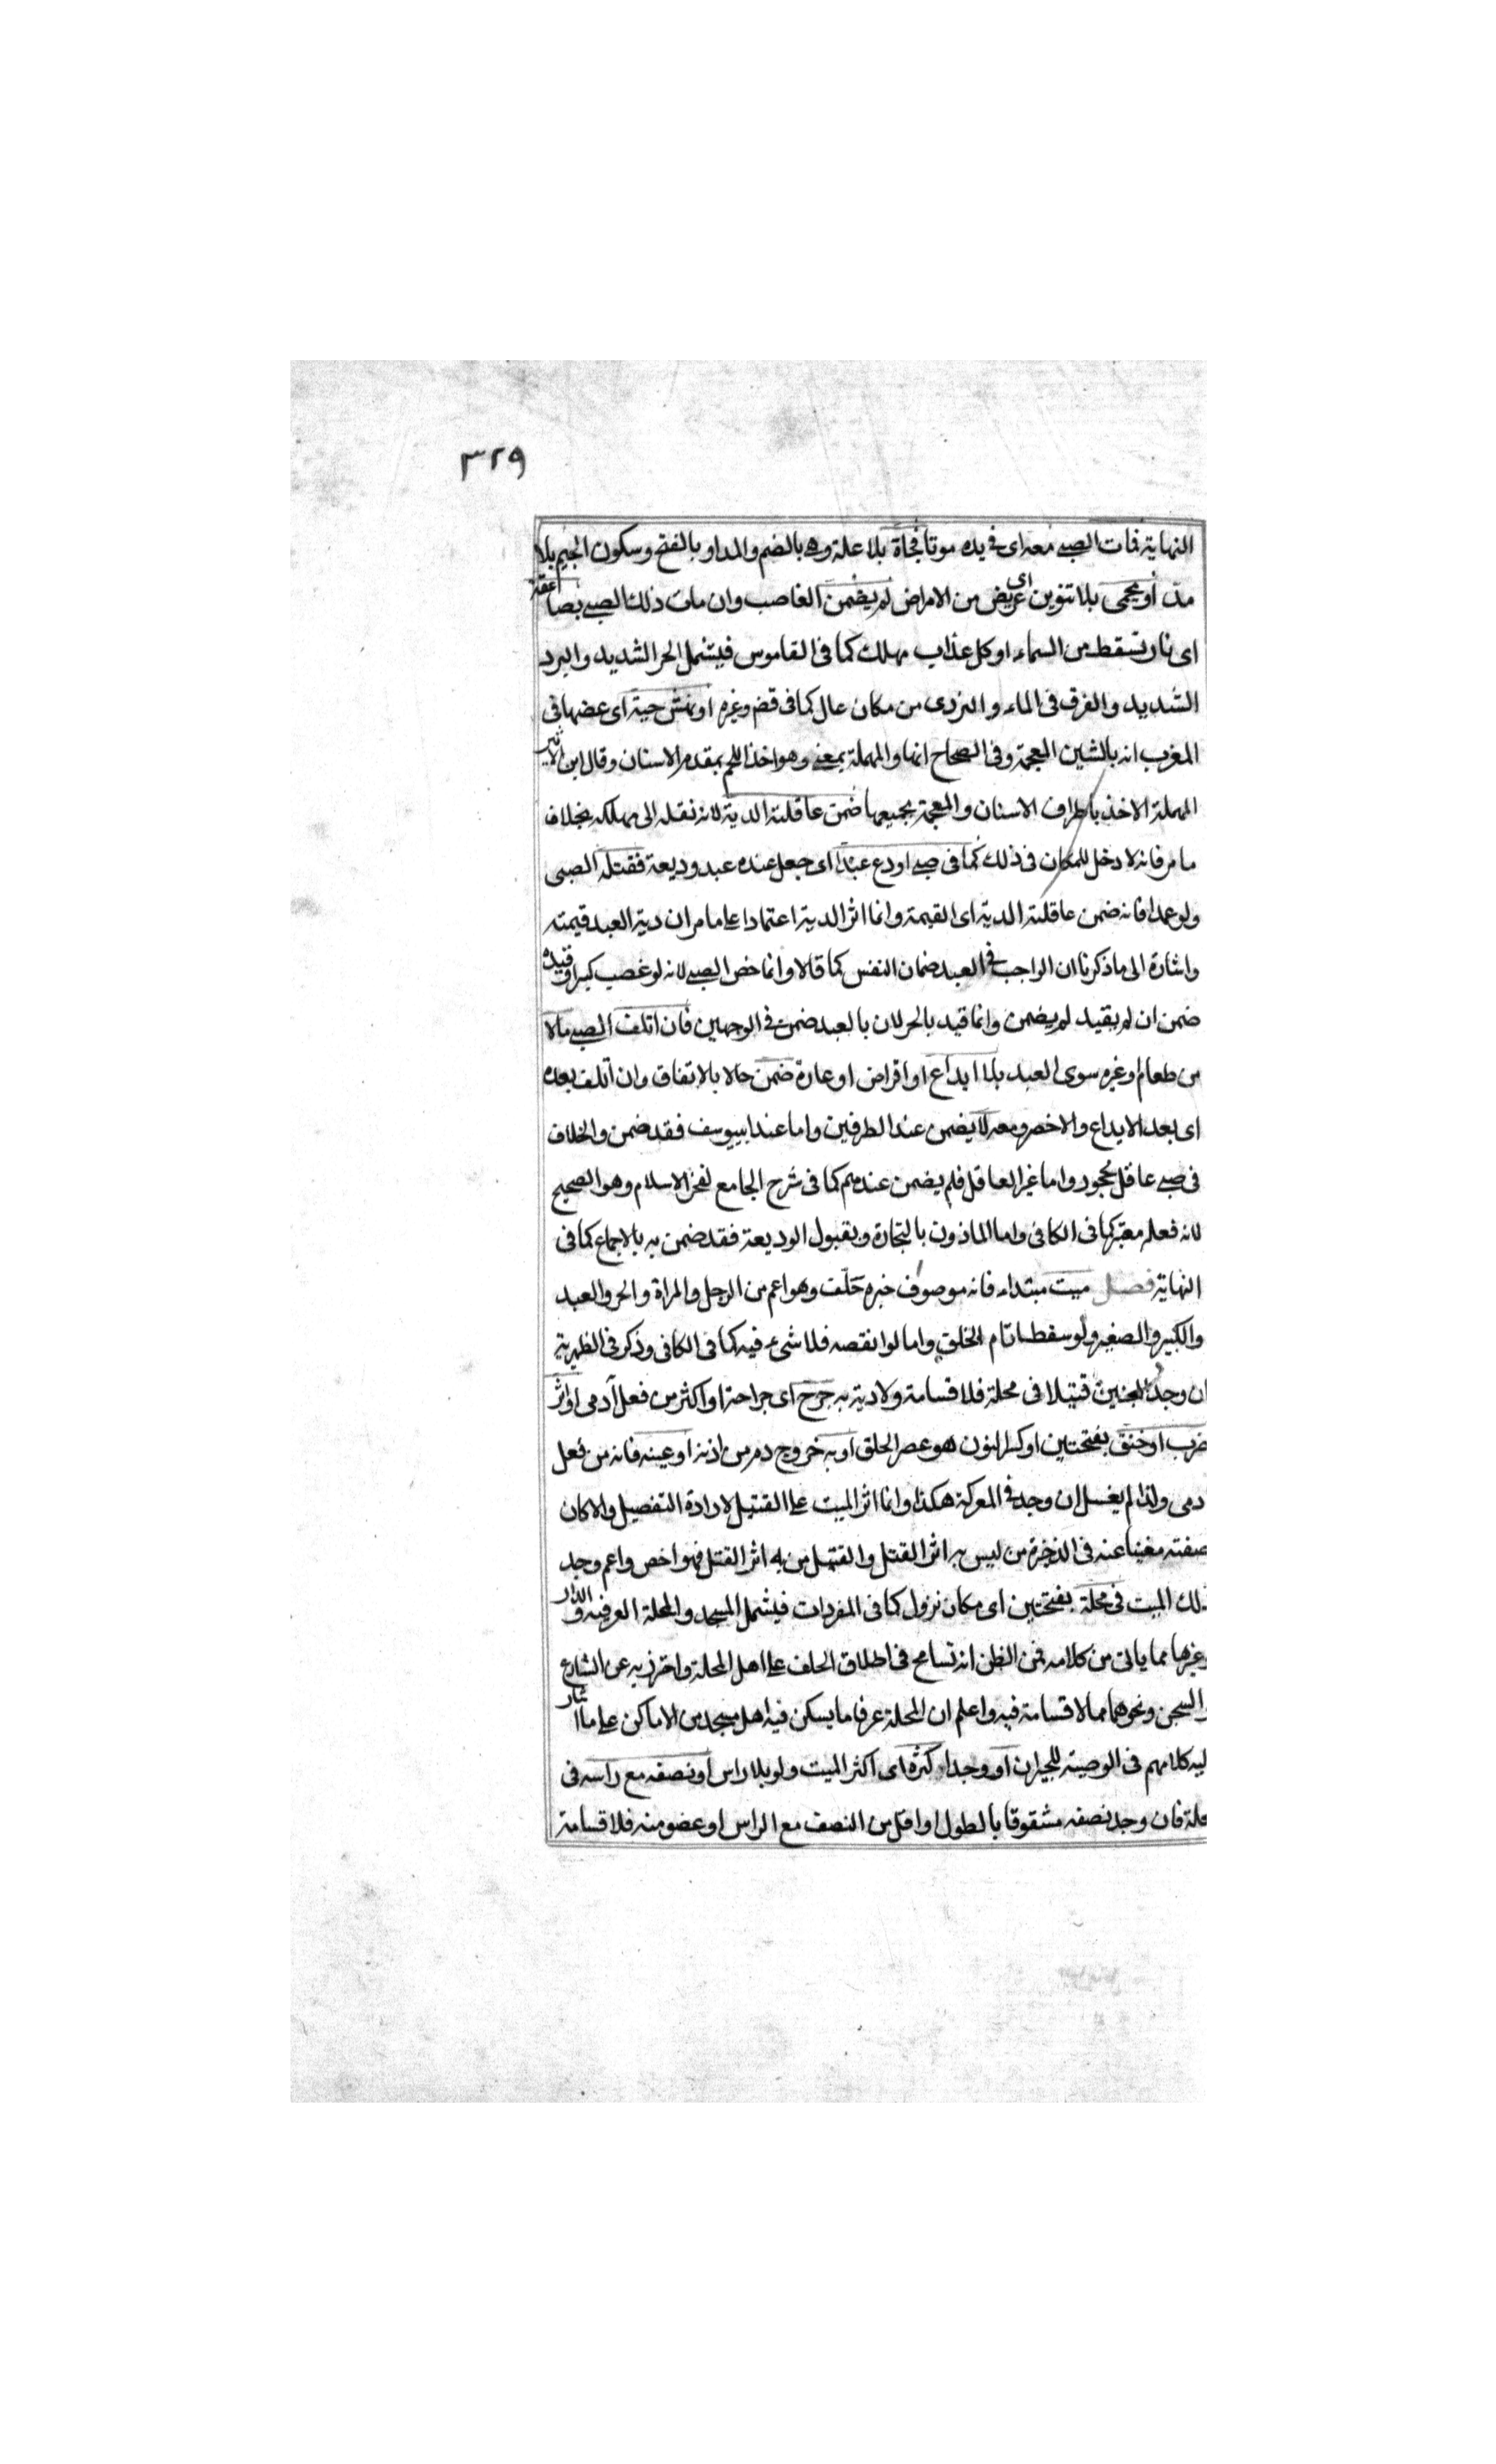 ٣٢٩
النهاية فمات الصبي معه اى في يده موتا فجأة بلا علة وهي بالضم والمد او بالفتح وسكون الجيم بلا
مد او بحمى بلا تنوين اى مرض من الامراض لم يضمن الغاصب وان مات ذلك الصبي بصاعقة
اى نار تسقط من السماء او كل عذاب مهلك كما فى القاموس فيشمل الحر الشديد والبرد
الشديد والغرق فى الماء والتردى من مكان عال كما فى قض وغيره او نهش حية اى عضها فى
المغرب انه بالشين المعجمة وفى الصحاح انها والمهملة بمعنى وهو اخذ اللحم بمقدم الاسنان وقال ابن الاثير
المهملة الاخذ باطراف الاسنان والمعجمة بجميعها ضمن عاقلته الدية لانه نقله الى مهلكه بخلاف
ما مر فانه لا دخل للمكان فى ذلك كما فى صبي اودع عبدا اى جعل عنده عبد وديعة فقتله الصبى
ولو عمدا فانه ضمن عاقلته الدية اى القيمة وانما اثر الدية اعتمادا على ما مر ان دية العبد قيمته
واشارة الى ما ذكرنا ان الواجب في العبد ضمان النفس كما قالا وانما خص الصبي لانه لو غصب كبيرا وقيده
ضمن ان لم يقيد لم يضمن وانما قيد بالحر لان بالعبد ضمن في الوجهين فان اتلف الصبي مالا
من طعام وغيره سوى العبد بلا ايداع او اقراض او عارة ضمن حالا بالاتفاق وان اتلف بعده
اى بعد الايداع والاخصر ومعه لا يضمن عند الطرفين واما عند ابييوسف فقد ضمن والخلاف
فى صبي عاقل محجور واما غير العاقل فلم يضمن عندهم كما فى شرح الجامع لفخر الاسلام وهو الصحيح
لانه فعله معتبر كما فى الكافى واما الماذون بالتجارة وبقبول الوديعة فقد ضمن به بالاجماع كما فى
النهاية فصل ميت مبتداء فانه موصوف خبره حلّف وهو اعم من الرجل والمراة والحر والعبد
والكبير والصغير ولو سقطا تام الخلق واما لو انقصه فلا شىء فيه كما فى الكافى وذكر فى الظهرية
ان وجد الجنين قتيلا فى محلة فلا قسامة ولا دية به جرح اى جراحة او اكثر من فعل آدمى او اثر
ضرب او خنق بفتحتين او كسر النون هو عصر الحلق او به خروج دم من اذنه او عينه فانه من فعل
ادمى ولذا لم يغسل ان وجد في المعركة هكذا وانما اثر الميت على القتيل لارادة التفصيل والا كان
صفته مغنيا عنه فى الذخيرة من ليس به اثر القتل والقتيل من به اثر القتل فهو اخص واعم وجد
ذلك الميت فى محلة بفتحتين اى مكان نزول كما فى المفردات فيشمل المسجد والمحلة العرفية والدار
وغيرها مما ياتى من كلامه فمن الظن انه تسامح فى اطلاق الحلف على اهل المحلة واحترز به عن الشارع
والسجن ونحوهما مما لا قسامة فيه واعلم ان المحلة عرفا ما يسكن فيه اهل مسجد من الاماكن على ما اشار
اليه كلامهم فى الوصية للجيران او وجد اكثره اى اكثر الميت ولو بلا راس او نصفه مع راسه فى
محلة فان وجد نصفه مشقوقا بالطول او اقل من النصف مع الراس او عضو منه فلا قسامة